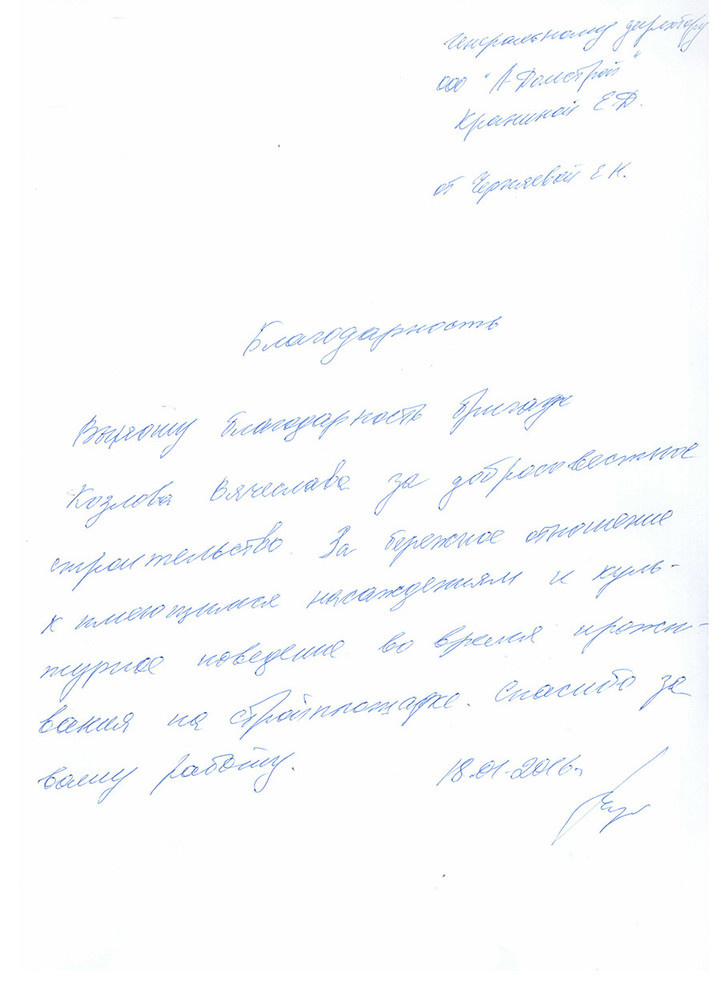 Генеральному директору
ООО "А-Домстрой"
Краниной Е.Д.
от Черняевой Е.Н.
Благодарность
Выношу благодарность бригаде
Козлова Вячеслава за добросовестное
строительство. За бережное отношение
к имеющимся насаждениям и куль-
турное поведение во время прожи-
вания на стройплощадке. Спасибо за
вашу работу.
18.01.2016г.